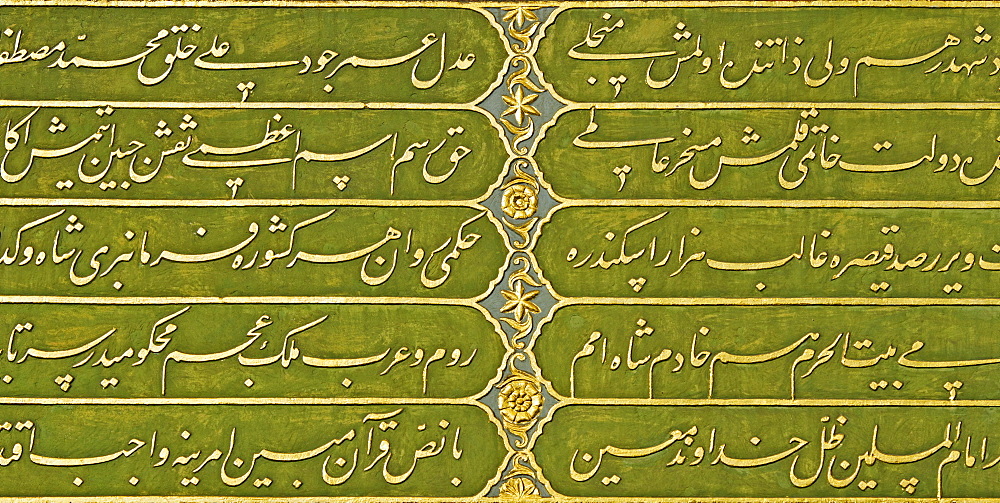 شهدر هم ولی ذاتندن اولمش منجلی عدل عمر جود علی خلق محمّد مصطفا
دولت خاتمی قلمش مسخر عالمی حق رسم اسم اعظمی نقش جبین ایتمش اكا
ویرر صد قیصره غالب هزار اسكندره حكمی روان هر كشوره فرمانبری شاه و كدا
بیت الحرم هم خادم شاه امم روم و عرب ملك عجم محكومیدر سر تا
امام المسلمین ظلّ خداوند معین با نصّ قرآن مبین امرینه واجب